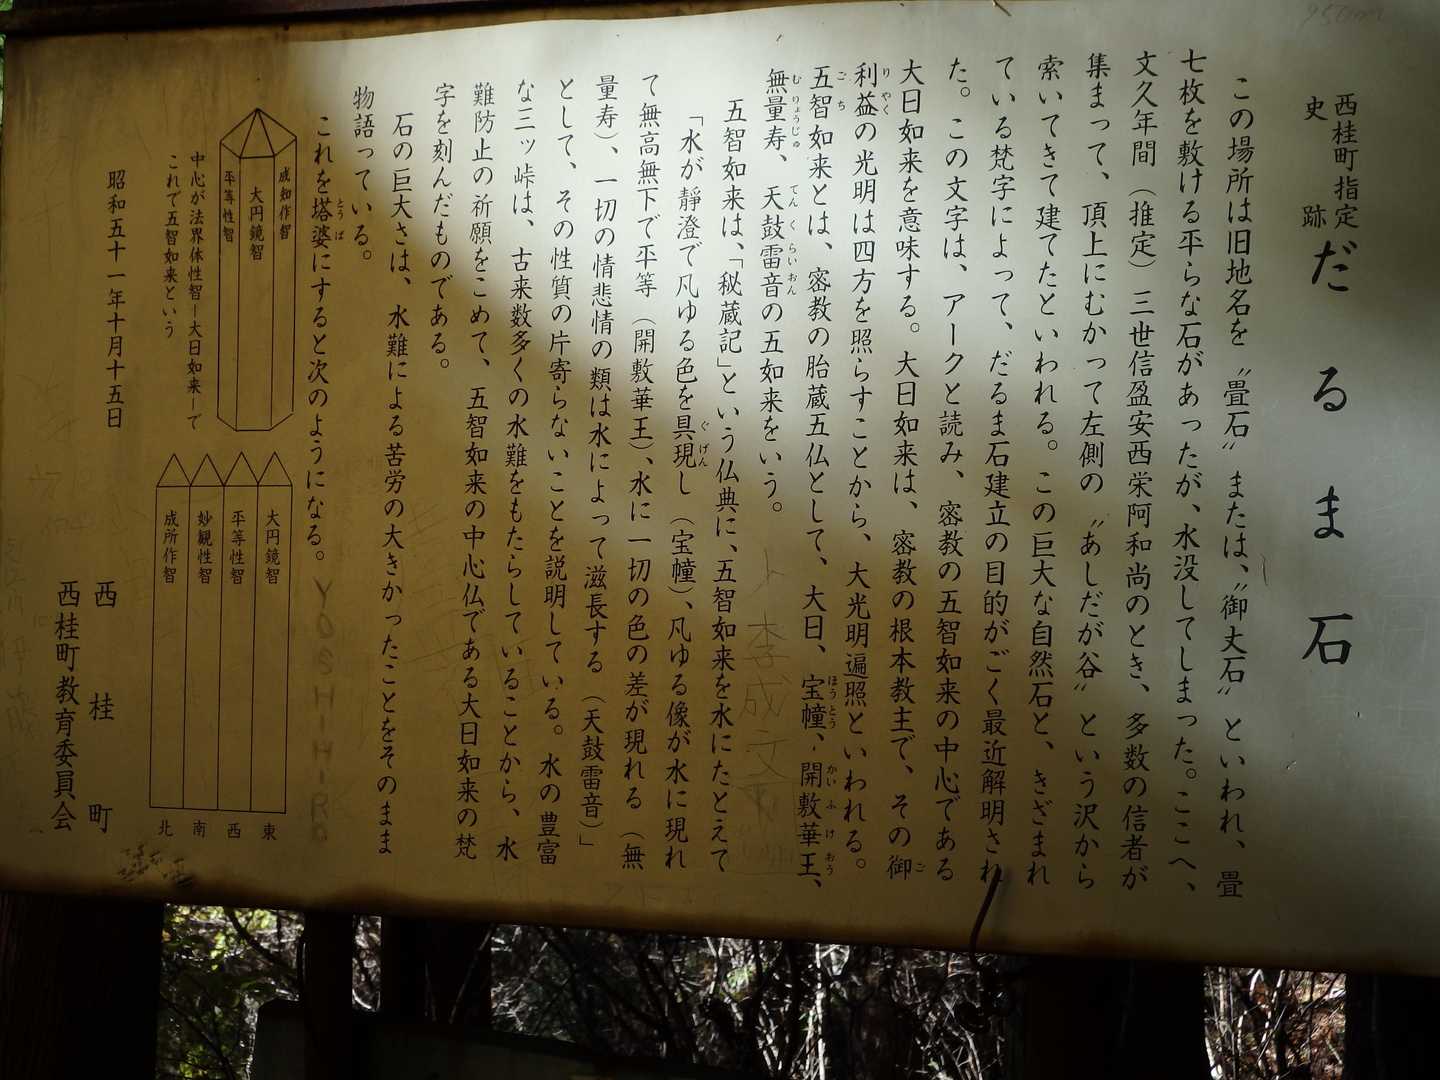 西桂町指定
史跡
だるま石
この場所は旧地名を〝畳石〟または、〝御丈石〟といわれ、畳
七枚を敷ける平らな石があったが、水没してしまった。ここへ、
文久年間（推定）三世信盈安西栄阿和尚のとき、多数の信者が
集まって、頂上にむかって左側の〝あしだが谷〟という沢から
索いてきて建てたといわれる。この巨大な自然石と、きざまれ
ている梵字によって、だるま石建立の目的がごく最近解明され
た。この文字は、アークと読み、密教の五智如来の中心である
大日如来を意味する。大日如来は、密教の根本教主で、その御
利益の光明は四方を照らすことから、大光明遍照といわれる。
五智如来とは、密教の胎蔵五仏として、大日、宝幢、開敷華王、
無量寿、天鼓雷音の五如来をいう。
五智如来は、「秘蔵記」という仏典に、五智如来を水にたとえて
「水が靜澄で凡ゆる色を具現し（宝幢）、凡ゆる像が水に現れ
て無高無下で平等（開敷華王）、水に一切の色の差が現れる（無
量寿）、一切の情悲情の類は水によって滋長する（天鼓雷音）」
として、その性質の片寄らないことを説明している。水の豊富
な三ッ峠は、古来数多くの水難をもたらしていることから、水
難防止の祈願をこめて、五智如来の中心仏である大日如来の梵
字を刻んだものである。
石の巨大さは、水難による苦労の大きかったことをそのまま
物語っている。
これを塔婆にすると次のようになる。
成知作智
大円鏡智
平等性智
中心が法界体性智ー大日如来ーで
これで五智如来という
大円鏡智
平等性智
妙観性智
成所作智
東
西
南
北
昭和五十一年十月十五日
西桂町
西桂町教育委員会
YOSHIHIRO